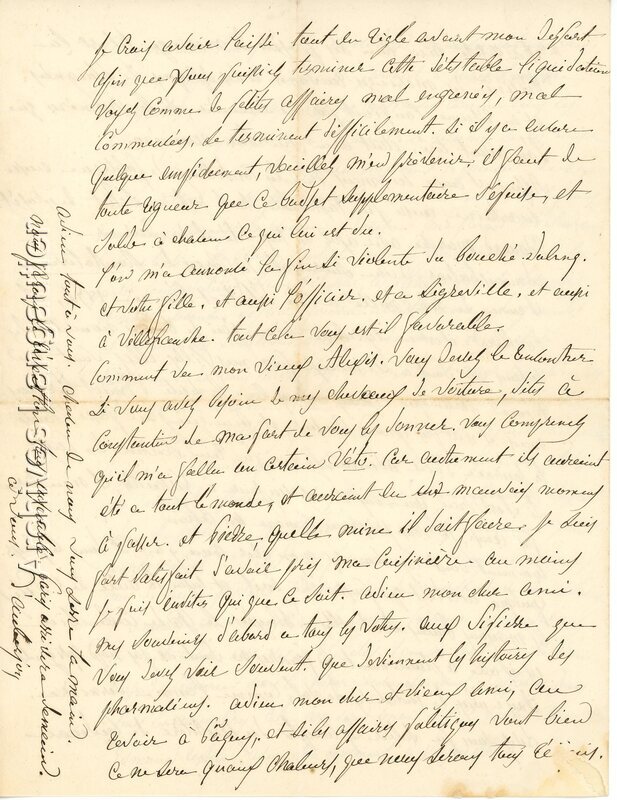 Je crois avoir laissé tout en règle avant mon départ
afin que vous puissiez terminer cette détestable liquidation
Voyez comme de petites affaires mal engrenées, mal
commencées, se terminent difficilement. Si il y a encore
quelque empêchement, veuillez m'en prévenir, il faut de
toute rigueur que ce budget supplémentaire s'épuise, et
solde à chaleur ce qui lui est dû.
l'on m'a annoncé la fin si violente du
et votre fille. et aussi l'officier. et a et aussi
à Villefranche. tout cela vous est il favorable.
Comment va mon vieux Alexis. Vous devez le rencontrer
Si vous avez besoin de mes chevaux de voiture, dites à
Constantin de ma part de vous les donner. Vous comprenez
qu'il m'a fallu un certain Véto. Car autrement ils auraient
été a tout le monde, et auraient eu mauvais moment
à passer. et quelle mine il doit faire. Je suis
fort satisfait d'avoir pris ma cuisinière au moins
je puis inviter qui que ce soit. adieu mon cher ami.
mes souvenirs d'abord a tous les vôtres. aux que
vous devez voir souvent. que deviennent les histoires des
pharmaciens. adieu mon cher et vieux ami, au
revoir à Pâques, et si les affaires politiques vont bien
ce ne sera qu'aux chaleurs, que nous serons tous
adieu tout à vous. de nous vous serre la main.
pars encore demain.